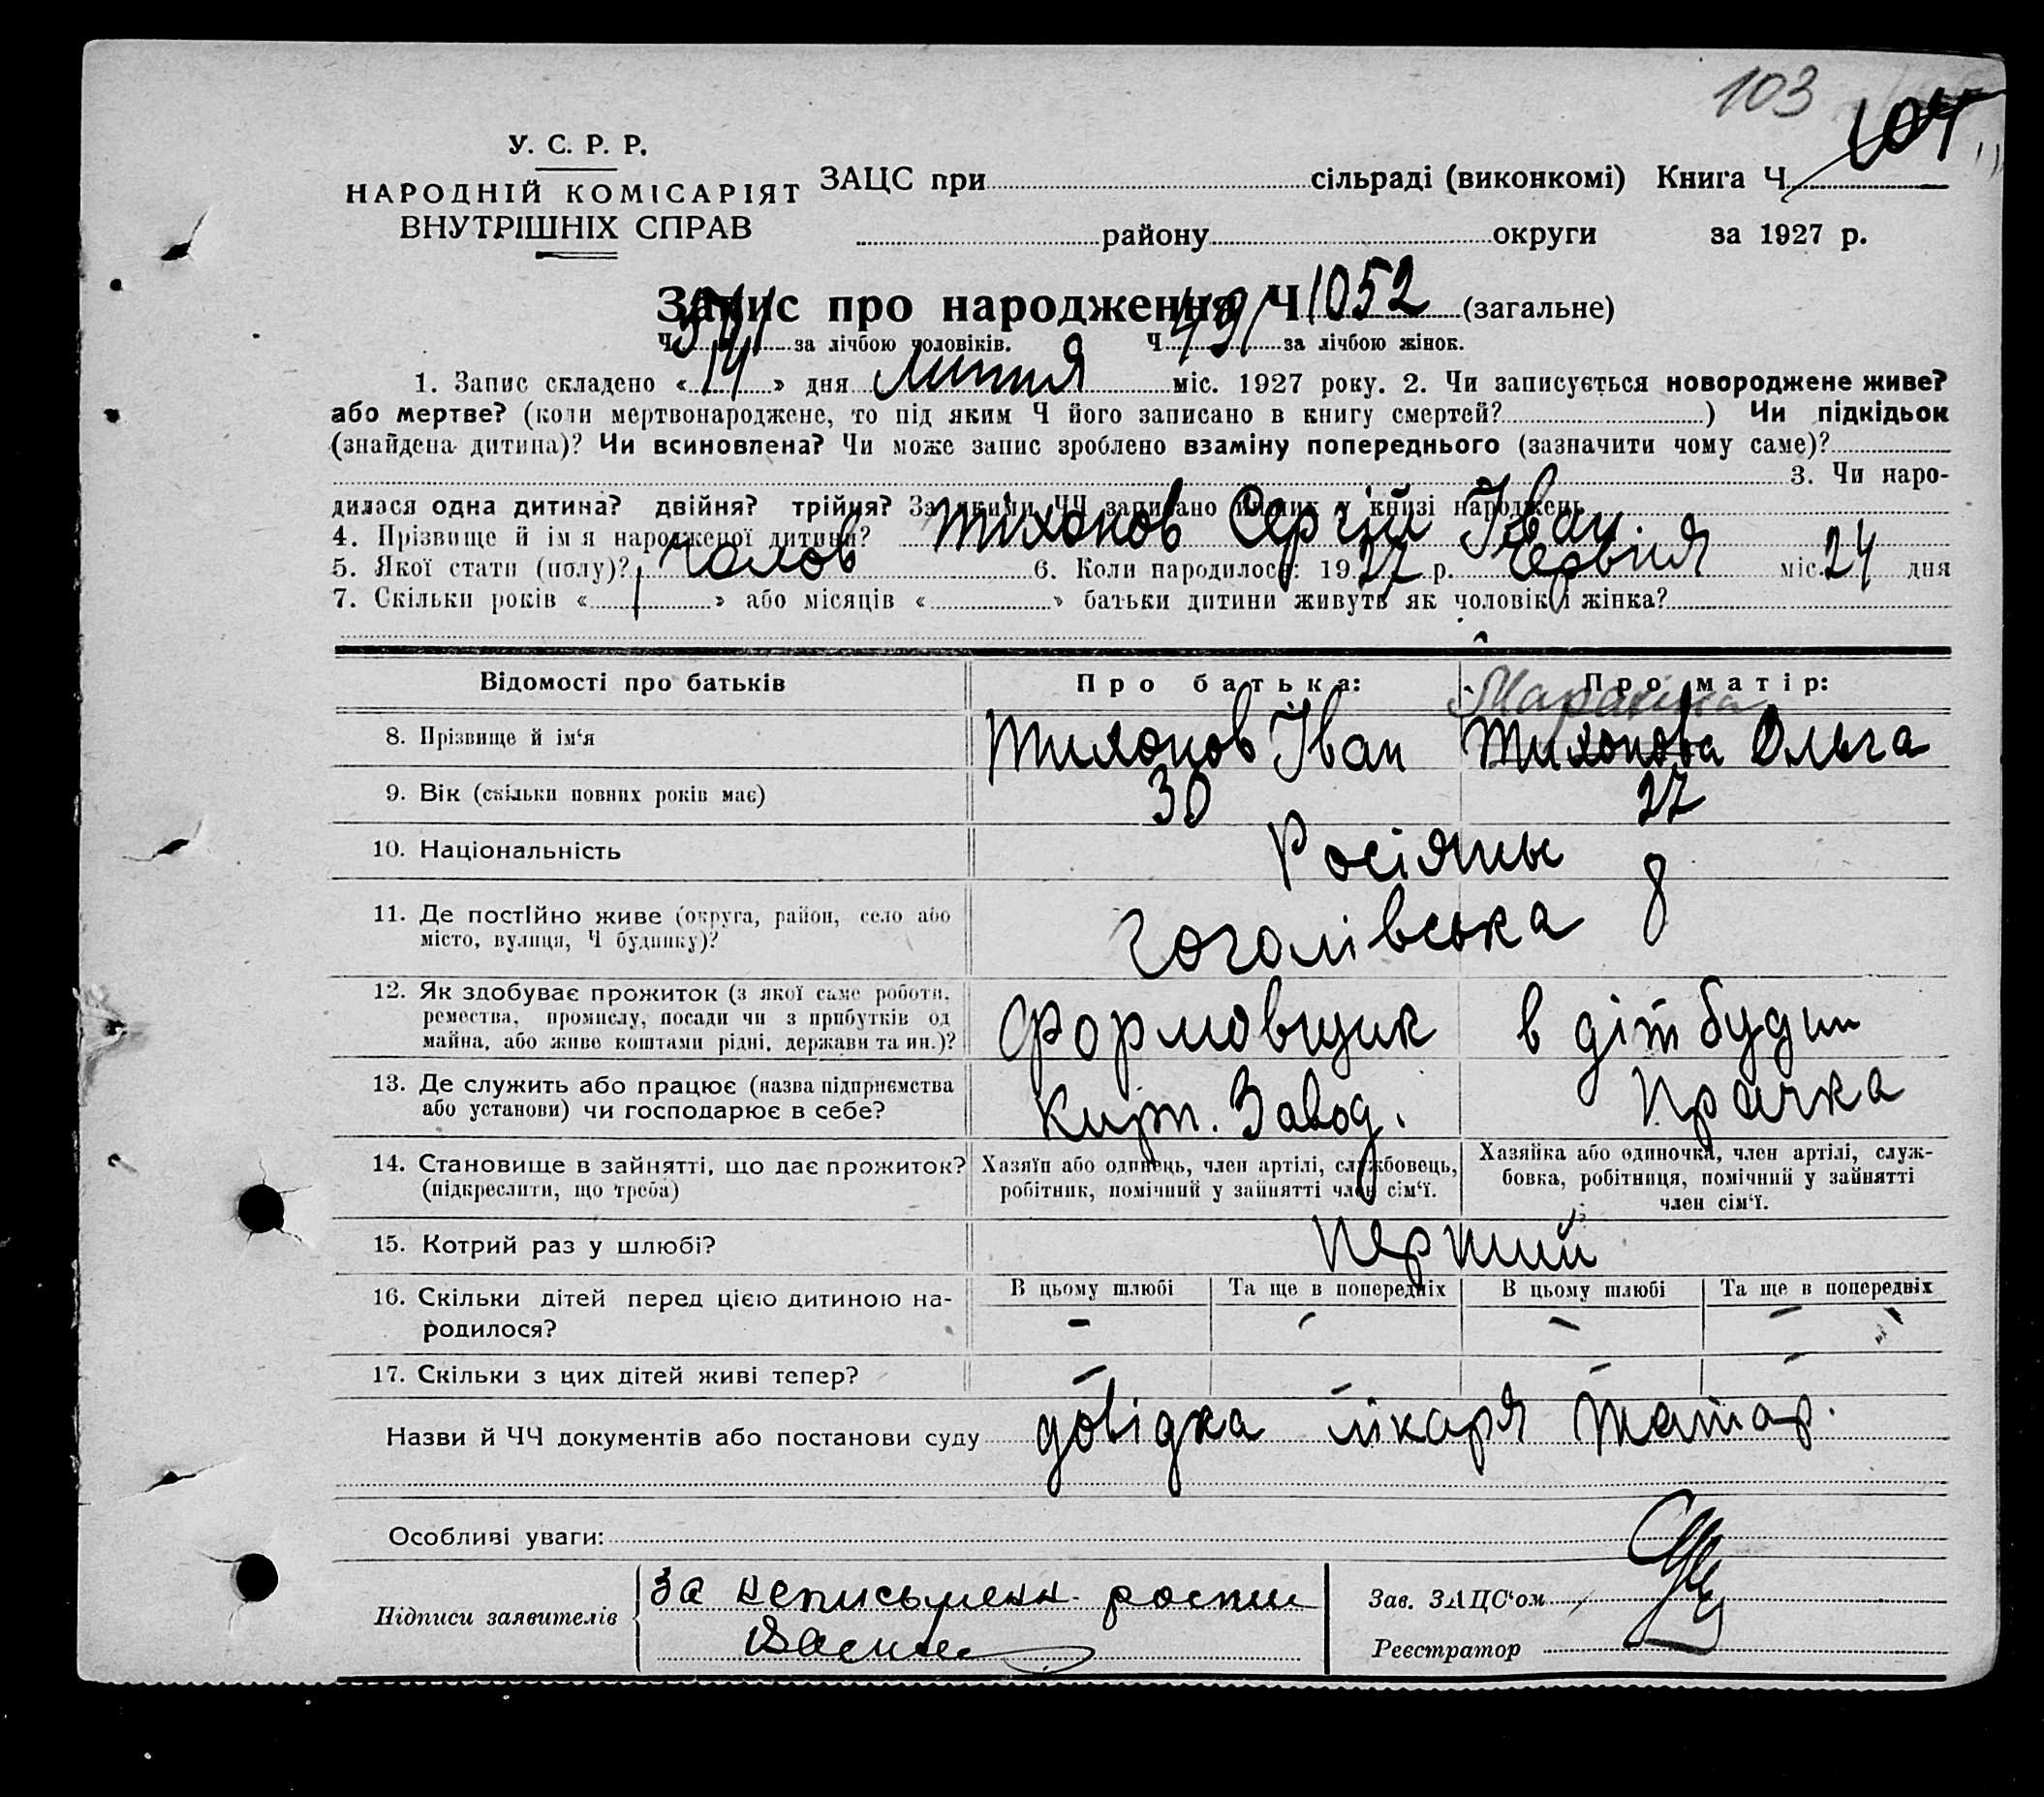 103
104
У. С. Р. Р.
НАРОДНІЙ КОМІСАРІЯТ
ВНУТРІШНІХ СПРАВ
ЗАЦС при сільраді (виконкомі) Книга Ч
району округи за 1927 р.
Запис про народження Ч 1052 (загальне)
Ч за лічбою чоловіків. Ч 491 за лічбою жінок.
1. Запис складено « 14 » дня Липня міс. 1927 року. 2. Чи записується новороджене живе?
або мертве? (коли мертвонароджене, то під яким Ч його записано в книгу смертей? ) Чи підкідьок
(знайдена дитина)? Чи всиновлена? Чи може запис зроблено взаміну попереднього (зазначити чому саме)?
3. Чи наро-
дилася одна дитина? двійня? трійня? За якими ЧЧ записано инших у книзі народжень
4. Прізвище й ім'я народженої дитини? Тихонов Сергій Іван.
5. Якої стати (полу)? Чолов 6. Коли народилося: 1927 р. Червня міс. 24 дня
7. Скільки років « 1 » або місяців « » батьки дитини живуть як чоловік і жінка?
Відомості про батьків Про батька: Про матір:
8. Прізвище й ім'я Тихонов Іван Тихонова Ольга
9. Вік (скільки повних років має) 30 27
10. Національність Росіяны
11. Де постійно живе (округа, район, село або
місто, вулиця, Ч будинку)? Гоголівська 8
12. Як здобуває прожиток (з якої саме роботи,
ремества, промислу, посади чи з прибутків од
майна, або живе коштами рідні, держави та ин.)? Формовщик в дітбудин
13. Де служить або працює (назва підприємства
або установи) чи господарює в себе? Кирп. Завод. Прачка
14. Становище в зайнятті, що дає прожиток?
(підкреслити, що треба)
Хазяїн або одинець, член артілі, службовець,
робітник, помічний у зайнятті член сім'ї.
Хазяйка або одиночка, член артілі, служ-
бовка, робітниця, помічний у зайнятті
член сім'ї.
15. Котрий раз у шлюбі? перший
16. Скільки дітей перед цією дитиною на-
родилося?
В цьому шлюбі Та ще в попередніх В цьому шлюбі Та ще в попередніх
- - - -
17. Скільки з цих дітей живі тепер? - - - -
Назви й ЧЧ документів або постанови суду довідка лікаря Татар.
Особливі уваги:
Підписи заявителів За неписьменн. роспи
Зав. ЗАЦС'ом
Реєстратор